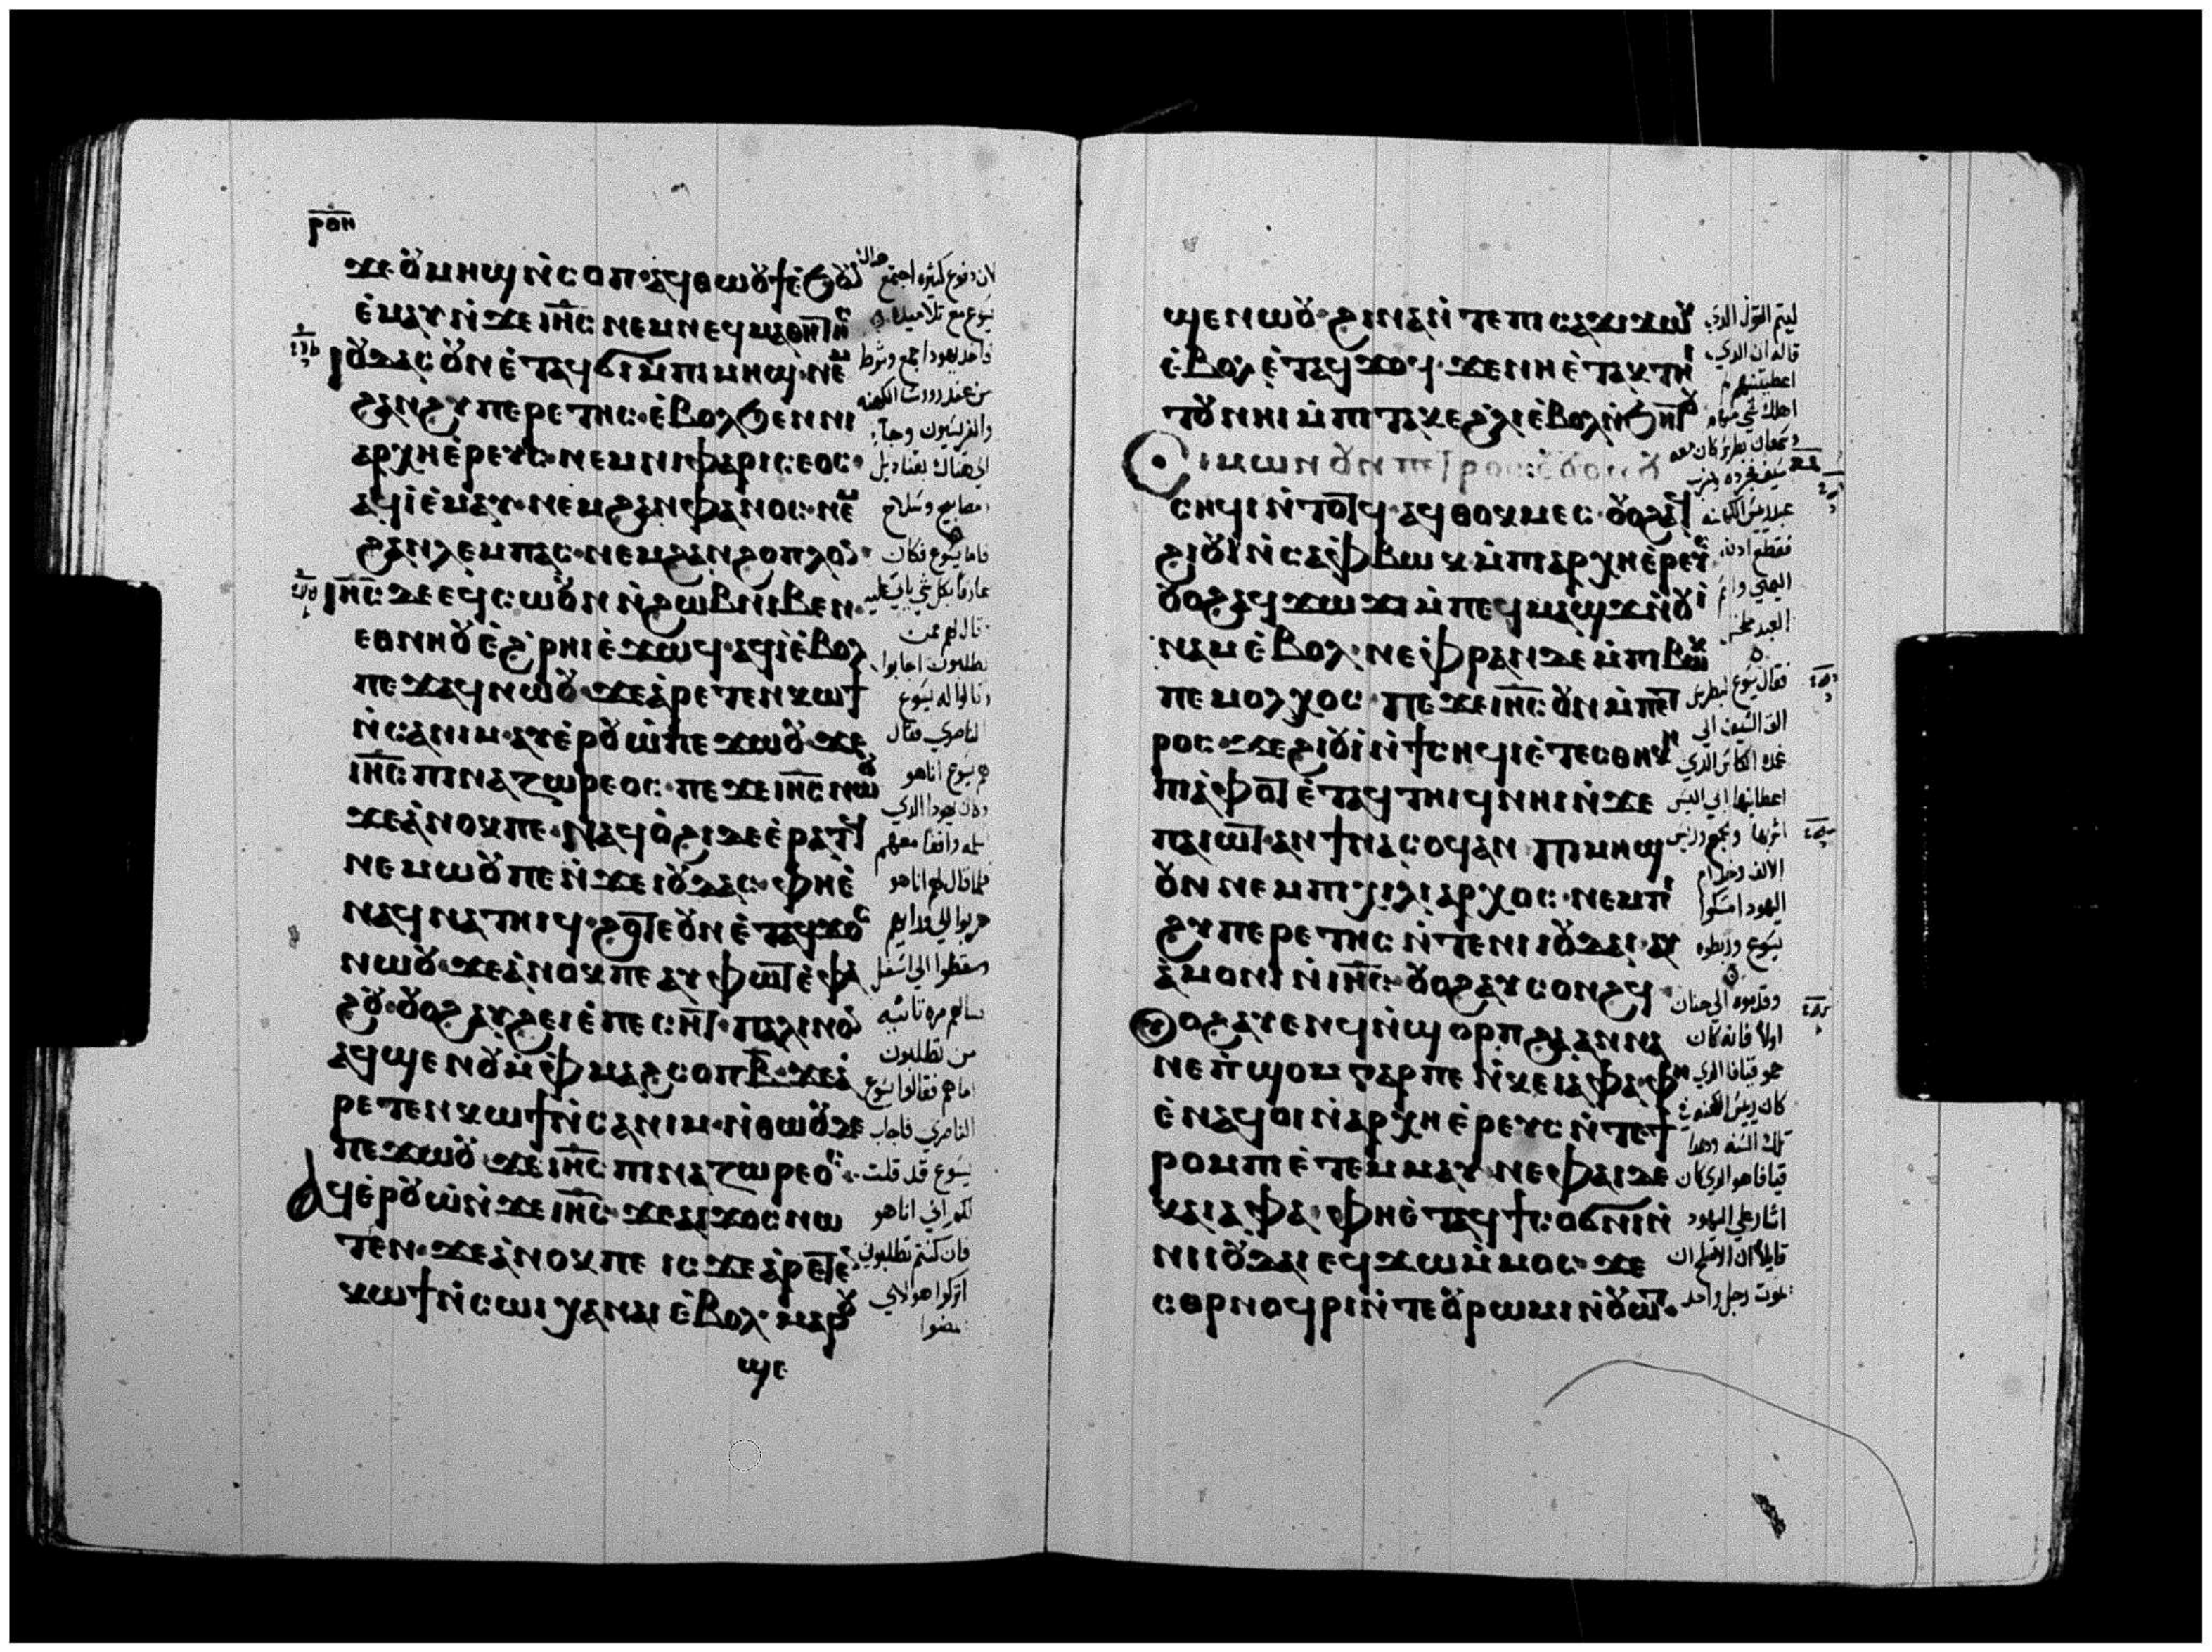 ⲣⲟⲏ
ϫⲉⲟⲩⲙⲏϣ ⲛ̀ⲥⲟⲡ· ⲁϥⲑⲱⲟⲩϯ ⲉ̀ϧⲟⲩⲛ
ⲉ̀ⲙⲁⲩ ⲛ̀ϫⲉ ⲓⲏ̅ⲥ̅ ⲛⲉⲙ ⲛⲉϥⲙⲁⲑⲏⲧⲏⲥ
ⲓⲟⲩⲇⲁⲥ ⲟⲩⲛ ⲉ̀ⲧⲁϥϭⲓ ⲙ̀ⲡⲓⲙⲏϣ· ⲛⲉⲙ
ϩⲁⲛϩⲩⲡⲉⲣⲉⲧⲏⲥ· ⲉ̀ⲃⲟⲗϧⲉⲛ ⲛⲓ
ⲁⲣⲭⲏⲉ̀ⲣⲉⲩⲥ· ⲛⲉⲙ ⲛⲓⲫⲁⲣⲓⲥⲉⲟⲥ·
ⲁϥⲓ̀ ⲉ̀ⲙⲁⲩ· ⲛⲉⲙ ϩⲁⲛⲫⲁⲛⲟⲥ· ⲛⲉⲙ
ϩⲁⲛⲗⲉⲙⲡⲁⲥ· ⲛⲉⲙ ϩⲁⲛϩⲟⲡⲗⲟⲛ·
ⲓⲏ̅ⲥ̅ ⲇⲉ ⲉϥⲥⲱⲟⲩⲛ ⲛ̀ϩⲱⲃ ⲛⲓⲃⲉⲛ·
ⲉⲑⲛⲏⲟⲩ ⲉ̀ϩ̀ⲣⲏⲓ ⲉ̀ϫⲱϥ· ⲁϥⲓ̀ ⲉ̀ⲃⲟⲗ
ⲡⲉϫⲁϥ ⲛⲱⲟⲩ· ϫⲉ ⲁ̀ⲣⲉⲧⲉⲛⲕⲱϯ
ⲛ̀ⲥⲁ ⲛⲓⲙ· ⲁⲩⲉ̀ⲣⲟⲩⲱ̀ ⲡⲉϫⲱⲟⲩ· ϫⲉ
ⲓⲏ̅ⲥ̅ ⲡⲓⲛⲁⲍⲱⲣⲉⲟⲥ· ⲡⲉϫⲉ ⲓⲏ̅ⲥ̅ ⲛⲱⲟⲩ
ϫⲉ ⲁ̀ⲛⲟⲕ ⲡⲉ· ⲛⲁϥⲟ̀ϩⲓ ⲇⲉ ⲉ̀ⲣⲁⲧϥ
ⲛⲉⲙⲱⲟⲩ ⲡⲉ ⲛ̀ϫⲉ ⲓⲟⲩⲇⲁⲥ· ⲫⲏⲉ̀
ⲛⲁϥⲛⲁⲧⲏⲓϥ· ϩⲟⲧⲉ ⲟⲩⲛ ⲉ̀ⲧⲁϥϫⲟⲥ
ⲛⲱⲟⲩ· ϫⲉ ⲁ̀ⲛⲟⲕ ⲡⲉ ⲁⲩⲫⲱⲧ ⲉ̀ⲫⲁ
ϩⲟⲩ· ⲟⲩⲟϩ ⲁⲩϩⲉⲓ ⲉ̀ⲡⲉⲥⲏⲧ· ⲡⲁⲗⲓⲛ ⲟⲛ
ⲁϥϣⲉⲛⲟⲩ ⲙ̀ⲫⲙⲁϩⲥⲟⲡ ⲃ̅· ϫⲉ ⲁ̀
ⲣⲉⲧⲉⲛⲕⲱϯ ⲛ̀ⲥⲁ ⲛⲓⲙ· ⲛ̀ⲑⲱⲟⲩ ⲇⲉ
ⲡⲉϫⲱⲟⲩ ϫⲉ ⲓⲏ̅ⲥ̅ ⲡⲓⲛⲁⲍⲱⲣⲉⲟⲥ·
ⲁϥⲉ̀ⲣⲟⲩⲱ̀ ⲛ̀ϫⲉ ⲓⲏ̅ⲥ̅· ϫⲉ ⲁⲓϫⲟⲥ ⲛⲱ
ⲧⲉⲛ· ϫⲉ ⲁ̀ⲛⲟⲕ ⲡⲉ ⲓⲥϫⲉ ⲁⲣⲉⲧⲉⲛ
ⲕⲱϯ ⲛ̀ⲥⲱⲓ ⲭⲁ ⲛⲁⲓ ⲉ̀ⲃⲟⲗ· ⲙⲁⲣⲟⲩ
ϣⲉ
لان دفوع كثيرة اجتمع هناك
يسوع مع تلاميذه
فاخذ يهودا جمع وشرط
من عند رووسا الكهنه
والفريسيون وجاء
الي هناك بقناديل
ومصابيح وسلاح
فاما يسوع فكان
عارفا بكل شي ياتي عليه
قال لهم عمن
تطلبون اجابوا
وقالوا له يسوع
الناصري فقال
لهم يسوع اناهو
وكان يهودا الذي
يسلمه واقفا معهم
فلما قال لهم اناهو
هربوا الي ورايهم
وسقطوا الي اسفل
سالهم مره تانيه
من تطلبون
اما هم فقالوا يسوع
الناصري فاجاب
يسوع قد قلت
لكم اني اناهو
فان كنتم تطلبوني
اتركوا هولاي
يمضوا
ϣⲉⲛⲱⲟⲩ· ϩⲓⲛⲁ ⲛ̀ⲧⲉ ⲡⲓⲥⲁϫⲓ ϫⲱⲕ
ⲉ̀ⲃⲟⲗ ⲉ̀ⲧⲁϥϫⲟϥ· ϫⲉ ⲛⲏ ⲉ̀ⲧⲁⲕⲧⲏⲓ
ⲧⲟⲩ ⲛⲏⲓ ⲙ̀ⲡⲓⲧⲁⲕⲉ ϩ̀ⲗⲓ ⲉ̀ⲃⲟⲗ ⲛ̀ϧⲏⲧⲟⲩ
Ⲥⲓⲙⲱⲛ ⲟⲩⲛ ⲡⲉⲧⲣⲟⲥ ⲉ̀ⲟⲩⲟⲛ ⲟⲩ
ⲥⲏϥⲓ ⲛ̀ⲧⲟⲧϥ· ⲁϥⲑⲟⲕⲙⲉⲥ· ⲟⲩⲟϩ ⲁϥ
ϩⲓⲟⲩⲓ̀ ⲛ̀ⲥⲁ ⲫ̀ⲃⲱⲕ ⲙ̀ⲡⲓⲁⲣⲭⲏⲉ̀ⲣⲉⲩⲥ
ⲟⲩⲟϩ ⲁϥϫⲱϫⲓ ⲙ̀ⲡⲉϥⲙⲁϣϫ ⲛ̀ⲟⲩⲓ̀
ⲛⲁⲙ ⲉ̀ⲃⲟⲗ· ⲛⲉ ⲫ̀ⲣⲁⲛ ⲇⲉ ⲙ̀ⲡⲓⲃⲱⲕ
ⲡⲉ ⲙⲟⲗⲭⲟⲥ· ⲡⲉϫⲉ ⲓⲏ̅ⲥ̅ ⲟⲩⲛ ⲙ̀ⲡⲉⲧ
ⲣⲟⲥ· ϫⲉ ϩⲓⲟⲩⲓ̀ ⲛ̀ϯⲥⲏϥⲓ ⲉ̀ⲧⲉⲥⲑⲏⲕⲏ
ⲡⲓⲁ̀ⲫⲟⲧ ⲉ̀ⲧⲁϥⲧⲏⲓϥ ⲛⲏⲓ ⲛ̀ϫⲉ
ⲡⲁⲓⲱⲧ· ⲁⲛ ϯⲛⲁⲥⲟϥ ⲁⲛ· ⲡⲓⲙⲏϣ
ⲟⲩⲛ ⲛⲉⲙ ⲡⲓⲭⲓⲗⲓⲁⲣⲭⲟⲥ· ⲛⲉⲙ ⲡⲓ
ϩⲩⲡⲉⲣⲉⲧⲏⲥ ⲛ̀ⲧⲉ ⲛⲓⲓⲟⲩⲇⲁⲓ· ⲁⲩ
ⲁ̀ⲙⲟⲛⲓ ⲛ̀ⲓⲏ̅ⲥ̅· ⲟⲩⲟϩ ⲁⲩⲥⲟⲛϩϥ
Ⲟⲩⲟϩ ⲁⲩⲉⲛϥ ⲛ̀ϣⲟⲣⲡ ϩⲁ ⲁⲛⲛⲁ
ⲛⲉ ⲡ̀ϣⲟⲙ ⲅⲁⲣ ⲡⲉ ⲛ̀ⲕⲉⲓⲁⲫⲁ· ⲫⲏ
ⲉ̀ⲛⲁϥⲟⲓ ⲛ̀ⲁⲣⲭⲏⲉ̀ⲣⲉⲩⲥ ⲛ̀ⲧⲉ ϯ
ⲣⲟⲙⲡⲓ ⲉ̀ⲧⲉⲙⲙⲁⲩ· ⲛⲉ ⲫⲁⲓ ⲇⲉ
ⲕⲁⲓⲁⲫⲁ· ⲫⲏⲉ̀ⲧⲁϥϯⲥⲟϭⲛⲓ ⲛ̀
ⲛⲓⲓⲟⲩⲇⲁⲓ ⲉϥϫⲱ ⲙ̀ⲙⲟⲥ· ϫⲉ
ⲥⲉⲣⲛⲟϥⲣⲓ ⲛ̀ⲧⲉ ⲟⲩⲣⲱⲙⲓ ⲛ̀ⲟⲩⲱⲧ·
ليتم القول الذي
قاله ان الذي
اعطيتنيهم
اهلك شي منهم
وسمعان بطرس كان معه
سيف فجرده وضرب
عبد رييس الكهنه
فقطع اذنه
اليمني واسم
العبد ملخس
فقال يسوع لبطرس
الق السيف الي
غمده الكاس الذي
اعطانيها ابي اليس
اشربها وجمع ورييس
الالف وخدام
اليهود امسكوا
يسوع وربطوه
وقدموه الي حنان
اولا فانه كان
حمو قيافا الذي
كان رييس الكهنه في
تلك السنه وهذا
قيافا هو الذي كان
اشار علي اليهود
قايلا ان الاصلح ان
يموت رجل واحد